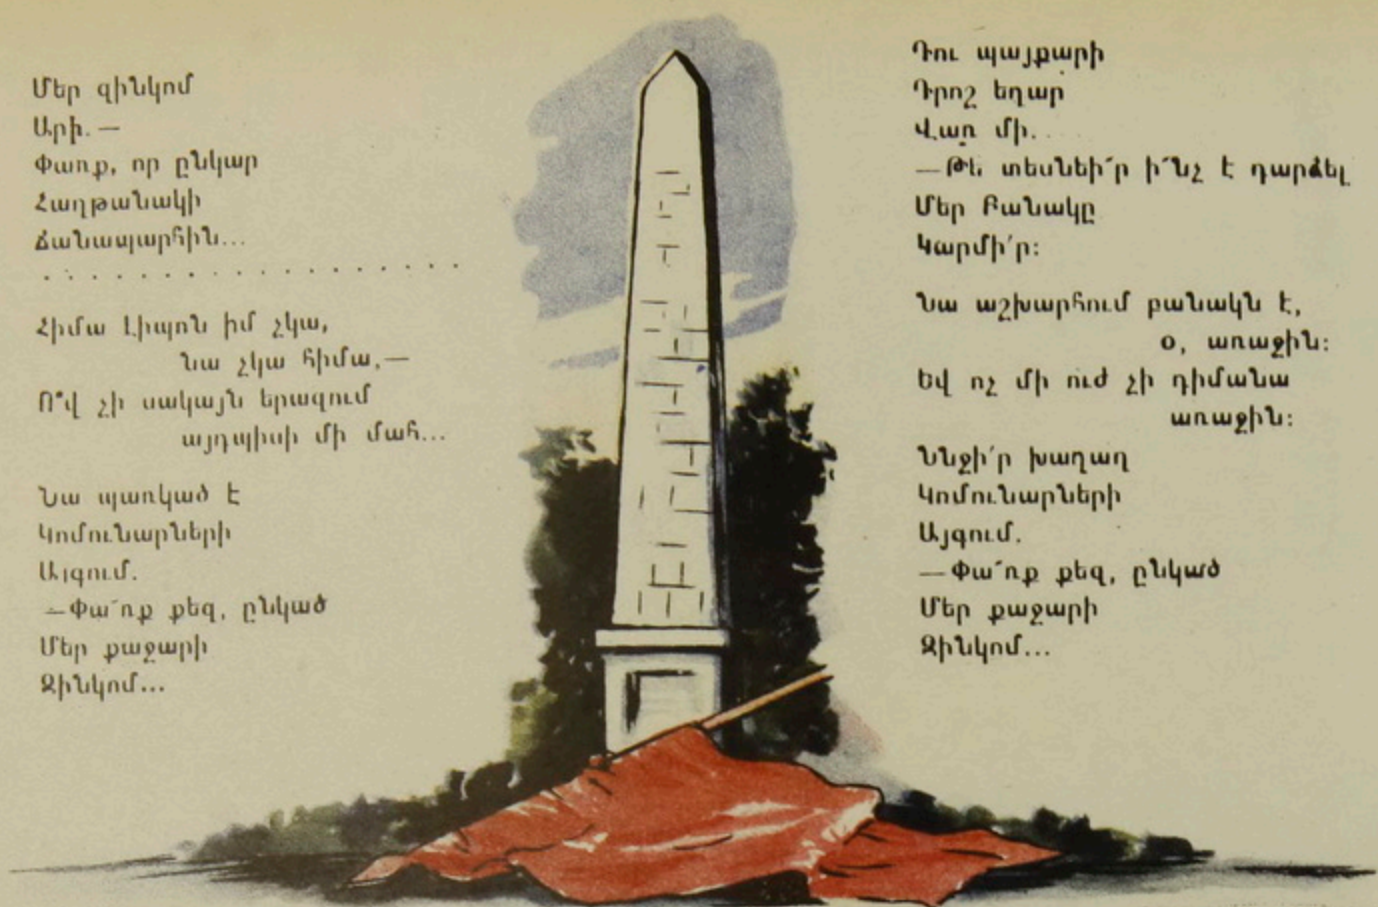 Մեր զինկոմ
Արի.—
Փառք, որ ընկար
Հաղթանակի
Ճանապարհին...
. . . . . . . . . . . . . . . . . .
Հիմա Լիպոն իմ չկա,
նա չկա հիմա,—
Ո՞վ չի սակայն երազում
այդպիսի մի մահ...
Նա պառկած է
Կոմունարների
Այգում.
—Փա՜ռք քեզ, ընկած
Մեր քաջարի
Զինկոմ...
Դու պայքարի
Դրոշ եղար
Վառ մի..
—Թե տեսնեի՜ր ի՜նչ է դարձել
Մեր Բանակը
Կարմի՛ր:
Նա աշխարհում բանակն է,
օ, առաջին:
Եվ ոչ մի ուժ չի դիմանա
առաջին:
Ննջի՛ր խաղաղ
Կոմունարների
Այգում.
—Փա՜ռք քեզ, ընկած
Մեր քաջարի
Զինկոմ...